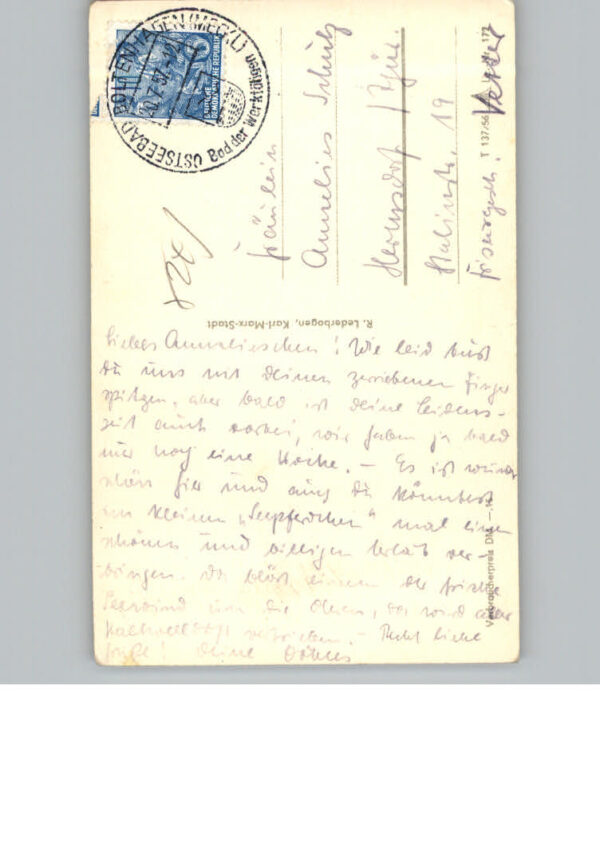 OSTSEEBAD BOLTENHAGEN (MECKL)
Bad der Werktätigen
DEUTSCHE
DEMOKRATISCHE REPUBLIK
Fräulein
Annelies Schulz
Hermsdorf / Thür
Stalinstr. 19
T 137/56
172
R. Lederbogen, Karl-Marx-Stadt
Verbraucherpreis DM
Liebes Annelieschen! Wie leid tust
du uns mit deinen zerriebenen Finger
spitzen, aber bald ist deine Leidens-
zeit auch vorbei, wir haben ja bald
nur noch eine Woche. – Es ist wunder
schön hier und auch du könntest
im kleinen „Seepferdchen“ mal einen
schönen und billigen Urlab ver-
bringen. Da bläst einem der frische
Seewind um die Ohren, da wird aller
vertrieben. – Recht liebe
Grüße! Deine